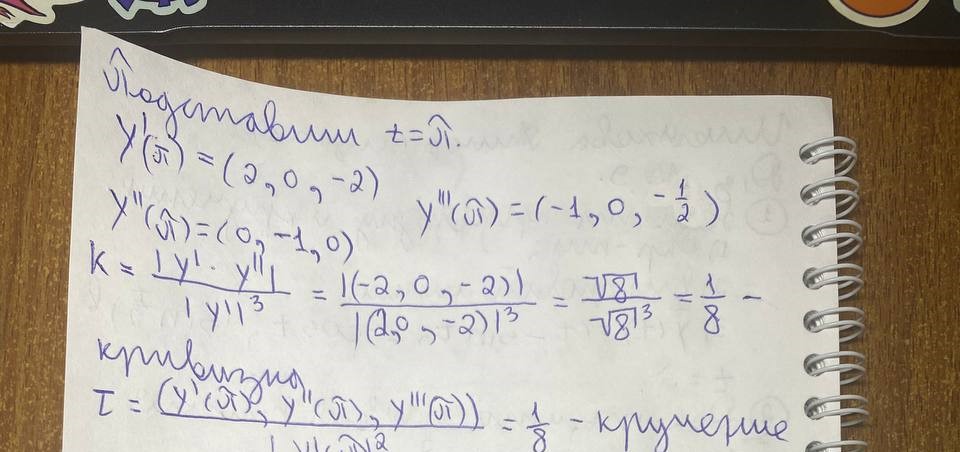 Подставим t = π.
γ'(π) = (2, 0, -2)
γ''(π) = (0, -1, 0) γ'''(π) = (-1, 0, -1/2)
K = |γ' · γ''| / |γ'|³ = |(-2, 0, -2)| / |(2, 0, -2)|³ = √8 / √8³ = 1/8 -
кривизна
τ = (γ'(π), γ''(π), γ'''(π)) / = 1/8 - кручение